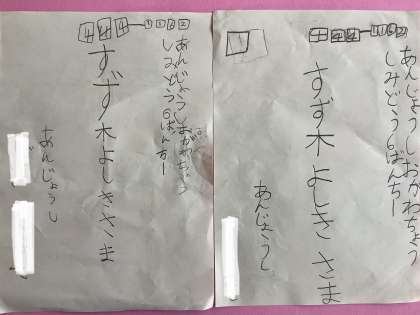 444-1162
あんじょうしおがわちょう
しみどう6ばんちー
すず木よしきさま
あんじょうし
444-1162
あんじょうしおがわちょう
しみどう6ばんちー
すず木よしきさま
あんじょうし